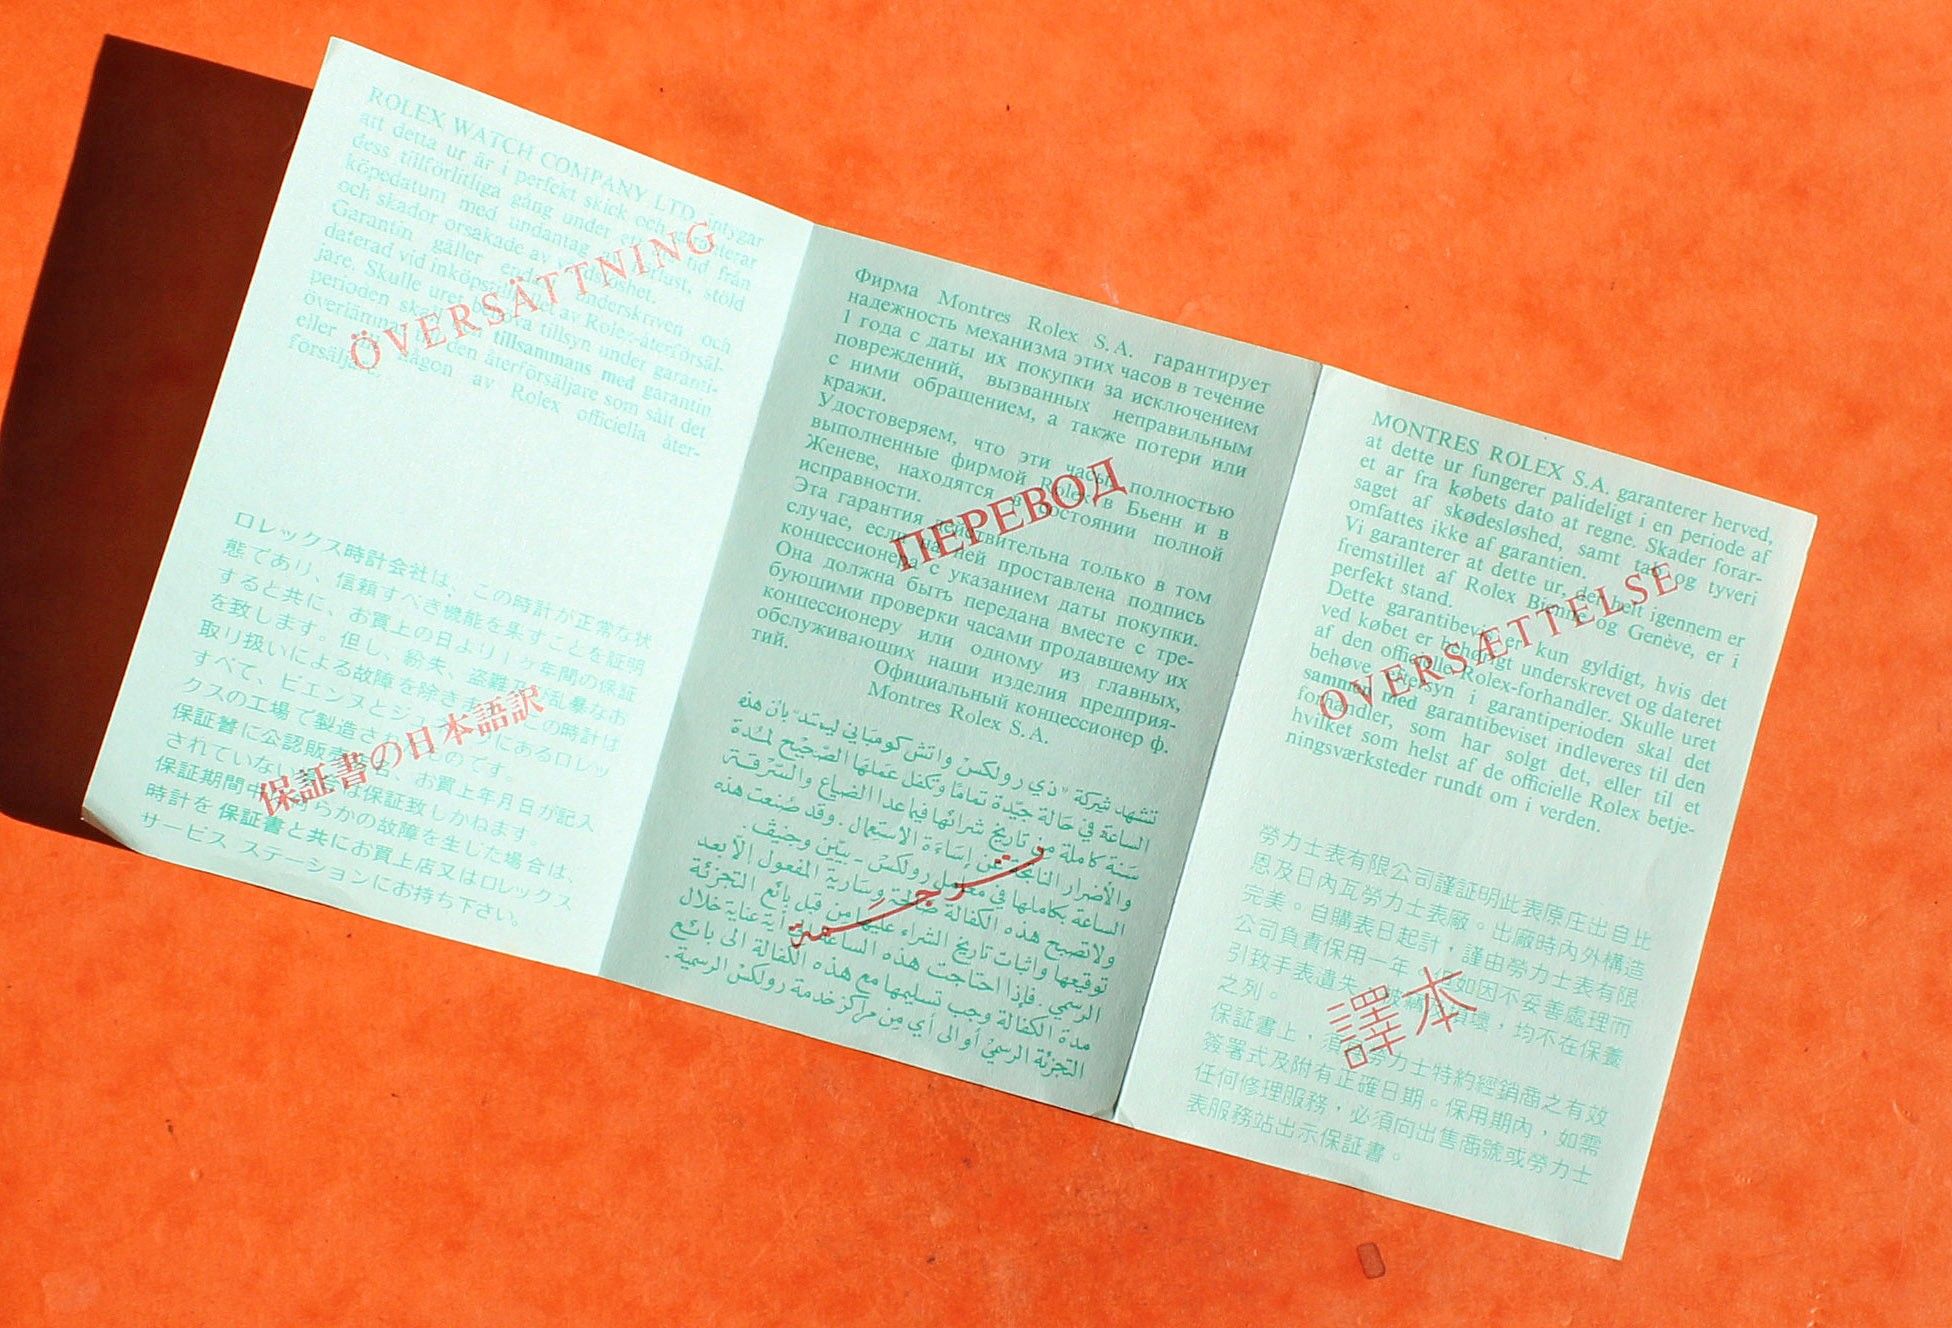 ROLEX WATCH COMPANY LTD. intygar
att detta ur är i perfekt skick och
dess tillförlitliga gång under tid från
köpedatum med undantag stöld
och skador orsakade av
Garantin gäller underskriven och
daterad vid inköps av Rolex-återförsäl-
jare. Skulle uret tillsyn under garanti-
perioden tillsammans med garantin
överlämnas den återförsäljare som sålt det
eller någon av Rolex officiella åter-
försäljare.
ÖVERSÄTTNING
ロレックス時計会社は、この時計が正常な状
態であり、信頼すべき機能を果すことを証明
すると共に、お買上の日より1ヶ年間の保証
を致します。但し、紛失、盗難及び乱暴なお
取り扱いによる故障を除きま の時計は
すべて、ビエンヌとジ にあるロレッ
クスの工場で製造さ のです。
保証書に公認販 名、お買上年月日が記入
されていない 保証致しかねます。
保証期間中 らかの故障を生じた場合は、
時計を保証書と共にお買上店又はロレックス
サービス ステーションにお持ち下さい。
保証書の日本語訳
Фирма Montres Rolex S.A. гарантирует
надежность механизма этих часов в течение
1 года с даты их покупки за исключением
повреждений, вызванных неправильным
с ними обращением, а также потери или
кражи.
Удостоверяем, что эти часы, полностью
выполненные фирмой Rolex в Бьенн и в
Женеве, находятся в состоянии полной
исправности.
Эта гарантия действительна только в том
случае, если на ней проставлена подпись
концессионера с указанием даты покупки.
Она должна быть передана вместе с тре-
бующими проверки часами продавшему их
концессионеру или одному из главных,
обслуживающих наши изделия предприя-
тий.
Официальный концессионер ф.
Montres Rolex S.A.
ПЕРЕВОД
تشهد شركة "ذي رولكس واتش كومباني ليمتد" بان هذه
الساعة في حالة جيدة تماما وتكفل عملها الصحيح لمدة
سنة كاملة من تاريخ شرائها فيما عدا الضياع والسرقة
والأضرار الناتجة عن إساءة الاستعمال. وقد صنعت هذه
الساعة بكاملها في معامل رولكس - بيين وجنيف.
ولا تصبح هذه الكفالة صالحة وسارية المفعول إلا بعد
توقيعها واثبات تاريخ الشراء عليها من قبل بائع التجزئة
الرسمي. فإذا احتاجت هذه الساعة إلى أية عناية خلال
مدة الكفالة وجب تسليمها مع هذه الكفالة الى بائع
التجزئة الرسمي أو الى أي من مراكز خدمة رولكس الرسمية.
ترجمة
MONTRES ROLEX S.A. garanterer herved,
at dette ur fungerer palideligt i en periode af
et ar fra købets dato at regne. Skader forar-
saget af skødesløshed, samt tab og tyveri
omfattes ikke af garantien.
Vi garanterer at dette ur, der helt igennem er
fremstillet af Rolex Bienne og Genève, er i
perfekt stand.
Dette garantibevis er kun gyldigt, hvis det
ved købet er behørigt underskrevet og dateret
af den officielle Rolex-forhandler. Skulle uret
behøve eftersyn i garantiperioden skal det
sammen med garantibeviset indleveres til den
forhandler, som har solgt det, eller til et
hvilket som helst af de officielle Rolex betje-
ningsværksteder rundt om i verden.
OVERSÆTTELSE
勞力士表有限公司謹証明此表原庄出自比
恩及日內瓦勞力士表廠。出廠時內外構造
完美。自購表日起計，謹由勞力士表有限
公司負責保用一年 如因不妥善處理而
引致手表遺失、 壞，均不在保養
之列。
保証書上，須 勞力士特約經銷商之有效
簽署式及附有正確日期。保用期內，如需
任何修理服務，必須向出售商號或勞力士
表服務站出示保証書。
譯本